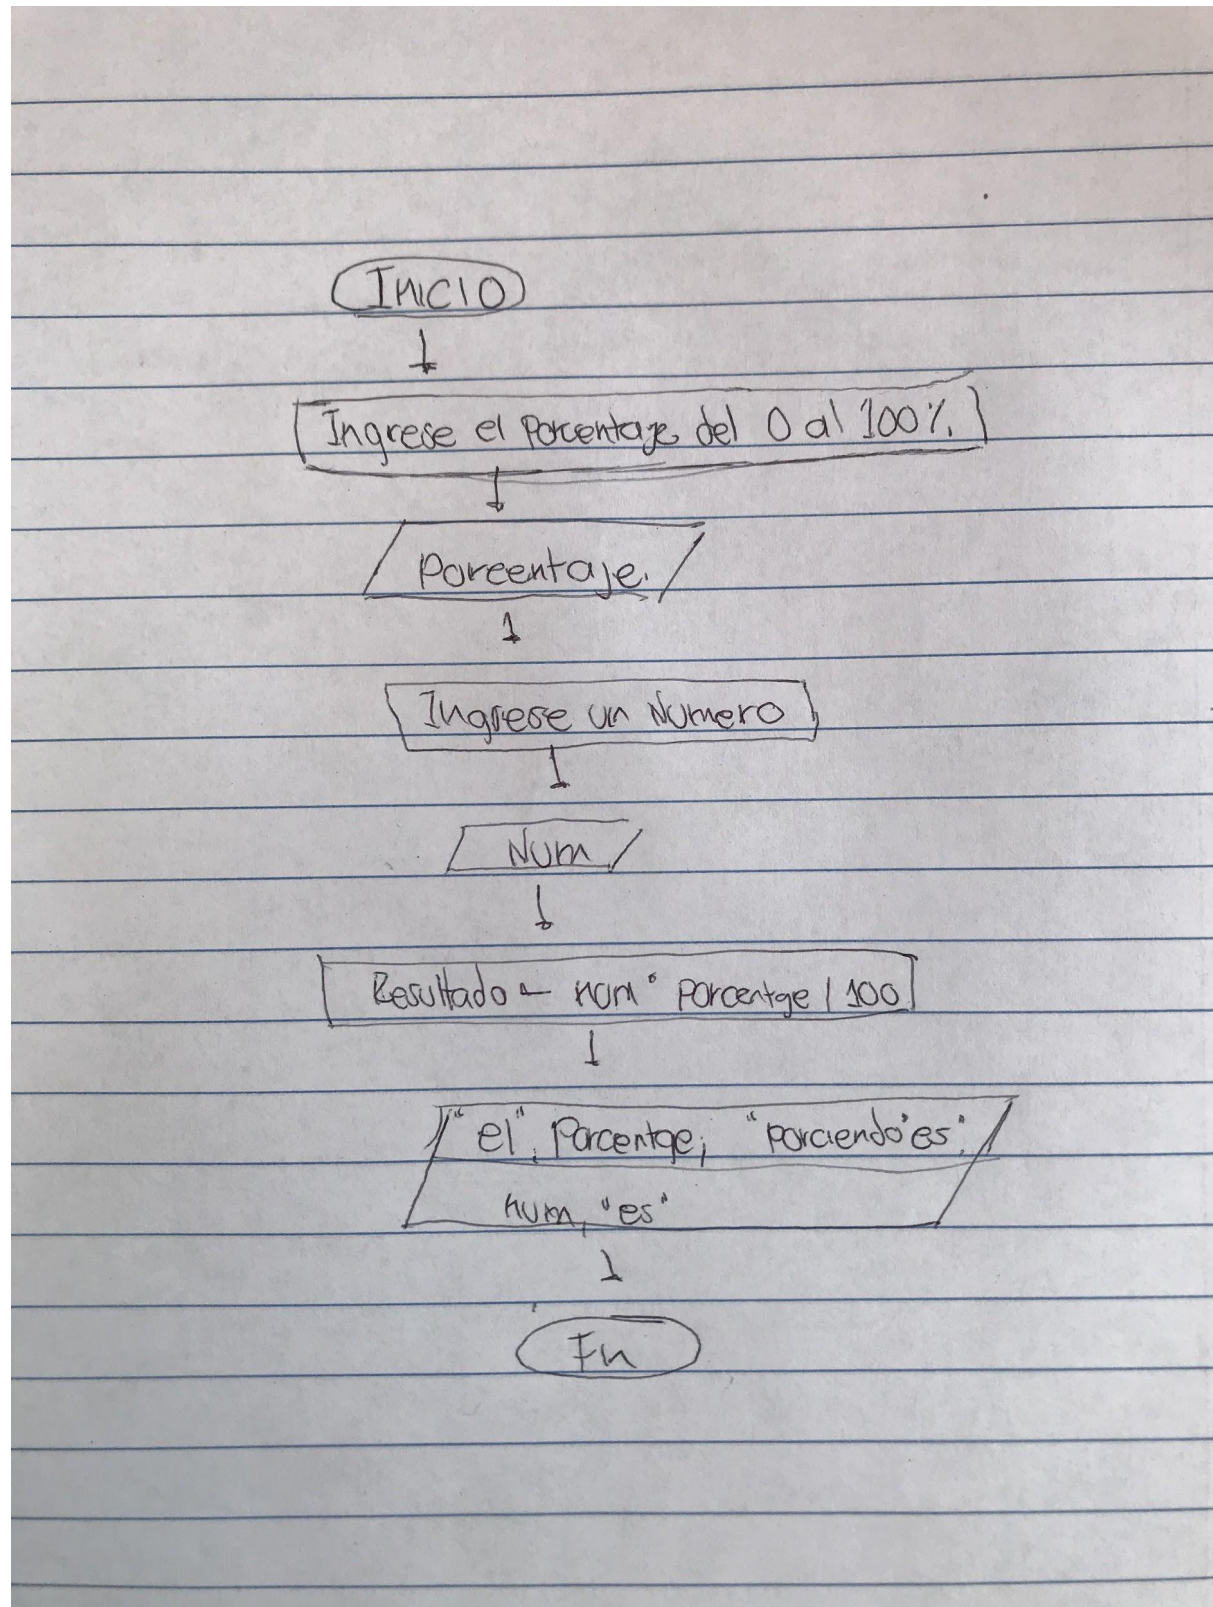 Inicio
Ingrese el Porcentaje del 0 al 100%
Porcentaje.
Ingrese un Numero
Num
Resultado ← num * Porcentge / 100
"el", Porcentge, "porciendo es",
num, "es"
Fin